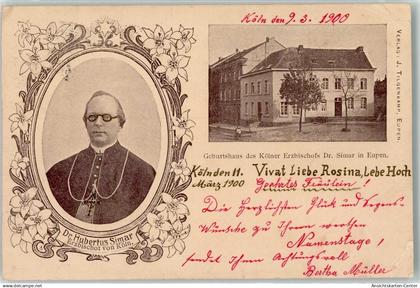 Köln den 9. 3. 1900
VERLAG: J. TILGENKAMP, EUPEN.
Geburtshaus des Kölner Erzbischofs Dr. Simar in Eupen.
Köln den 11. März 1900
Vivat Liebe Rosina, Lebe Hoch
Geehrtes Fräulein!
Die Herzlichsten Glück und Segens-
Wünsche zu Ihrem werthen
Namenstage,
sendet Ihnen Achtungsvoll
Bertha Müller
Dr. Hubertus Simar
Erzbischof von Köln.
www.ansichtskarten-center.de
Ansichtskarten-Center